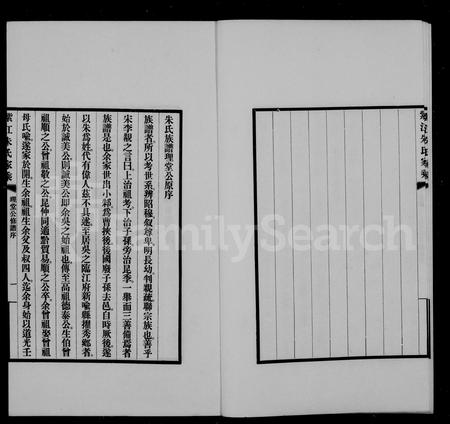 朱氏族譜理堂公原序
族譜者所以考世系辨昭穆叙尊卑明長幼判親疏聯宗族也善乎
宋李覯之言曰上治祖考下治子孫旁治昆季一舉而三善備焉者
族譜是也余家世出小邾為曹挾後後國廢子孫去邑自時厥後遂
以朱為姓代有偉人茲不具述至居吳之臨江府新喻縣擢秀鄉者
始於誠美公則誠美公即余吳之始祖也傳至高祖德泰公生伯曾
祖順之公曾祖敬之公昆仲同適黔貿易順之公卒余曾祖娶曾祖
母氏喻遂家於開生余祖祖生余父及叔四人迄余身始以道光壬
紫江朱氏家乘
理堂公修譜序
一
紫江朱氏家乘
FamilySearch